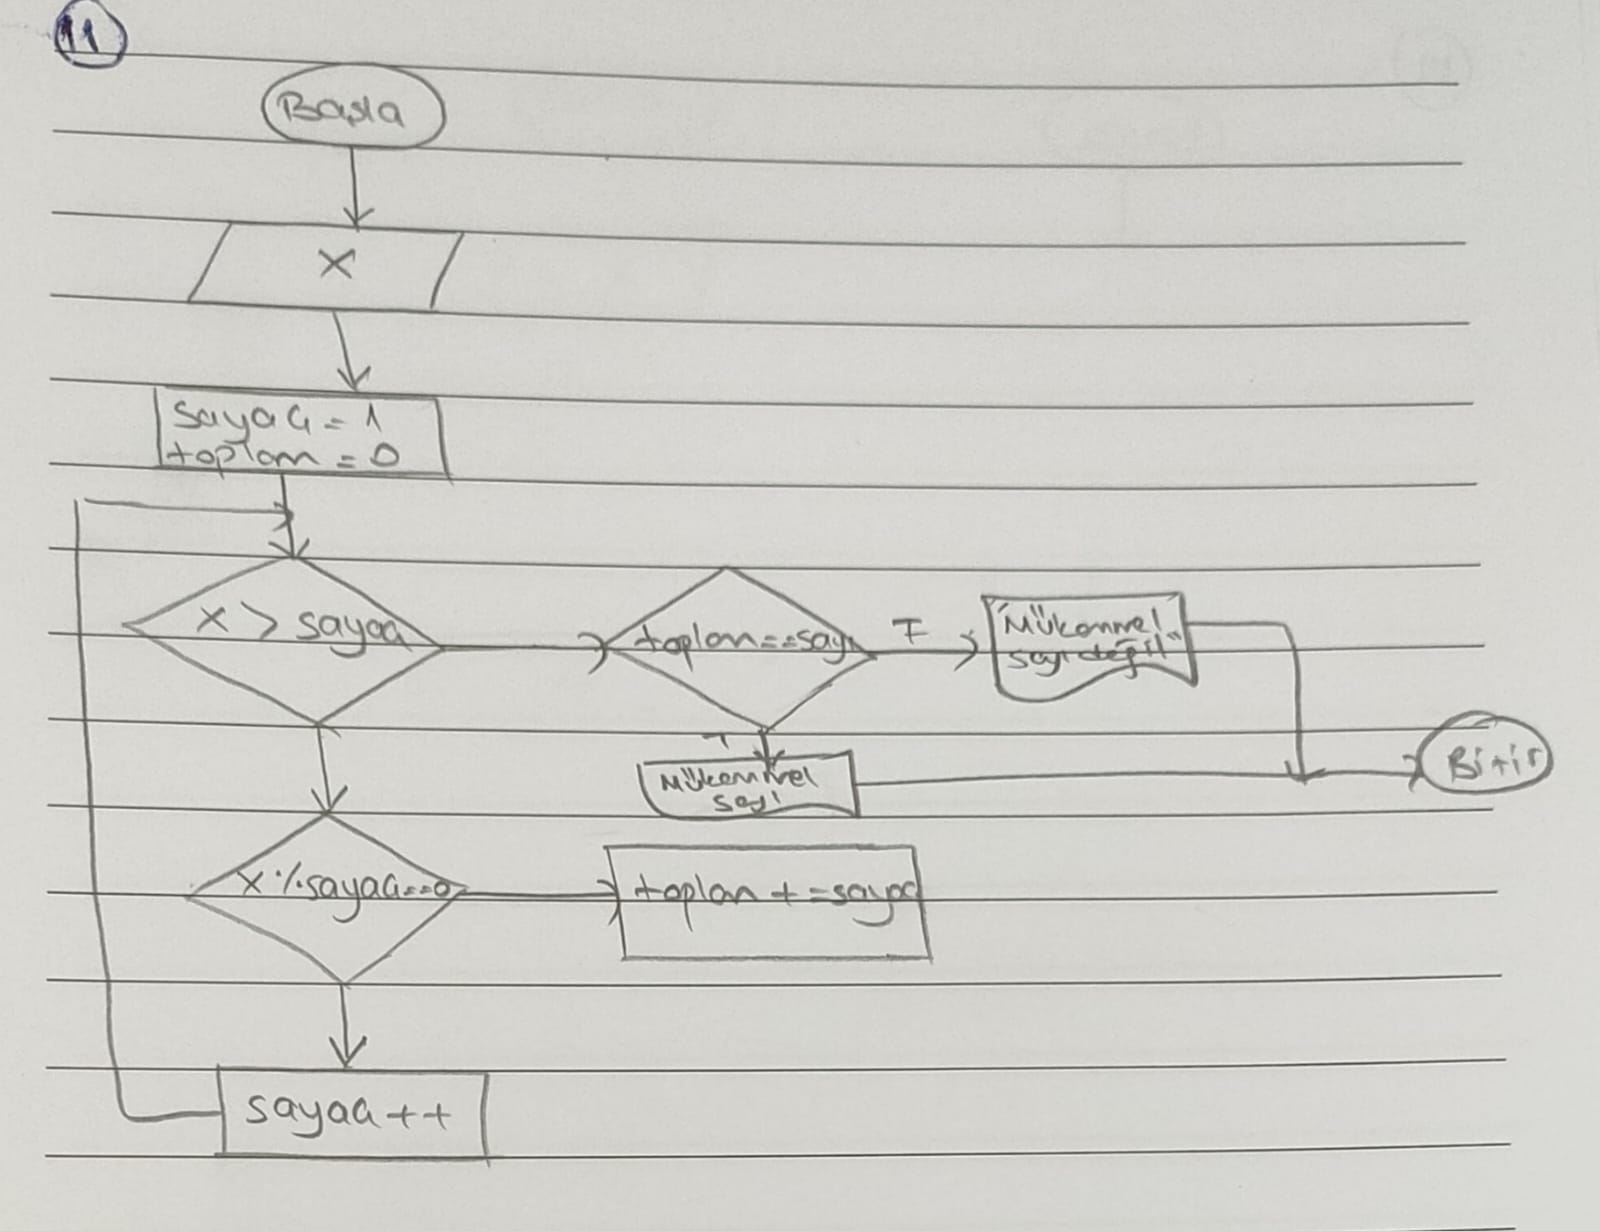 11
Başla
X
sayaç = 1
toplam = 0
X > sayaç
toplam==sayı
F
"Mükemmel
sayı değil"
T
Mükemmel
sayı
Bitir
X % sayaç==0
toplam + =sayaç
sayaç ++